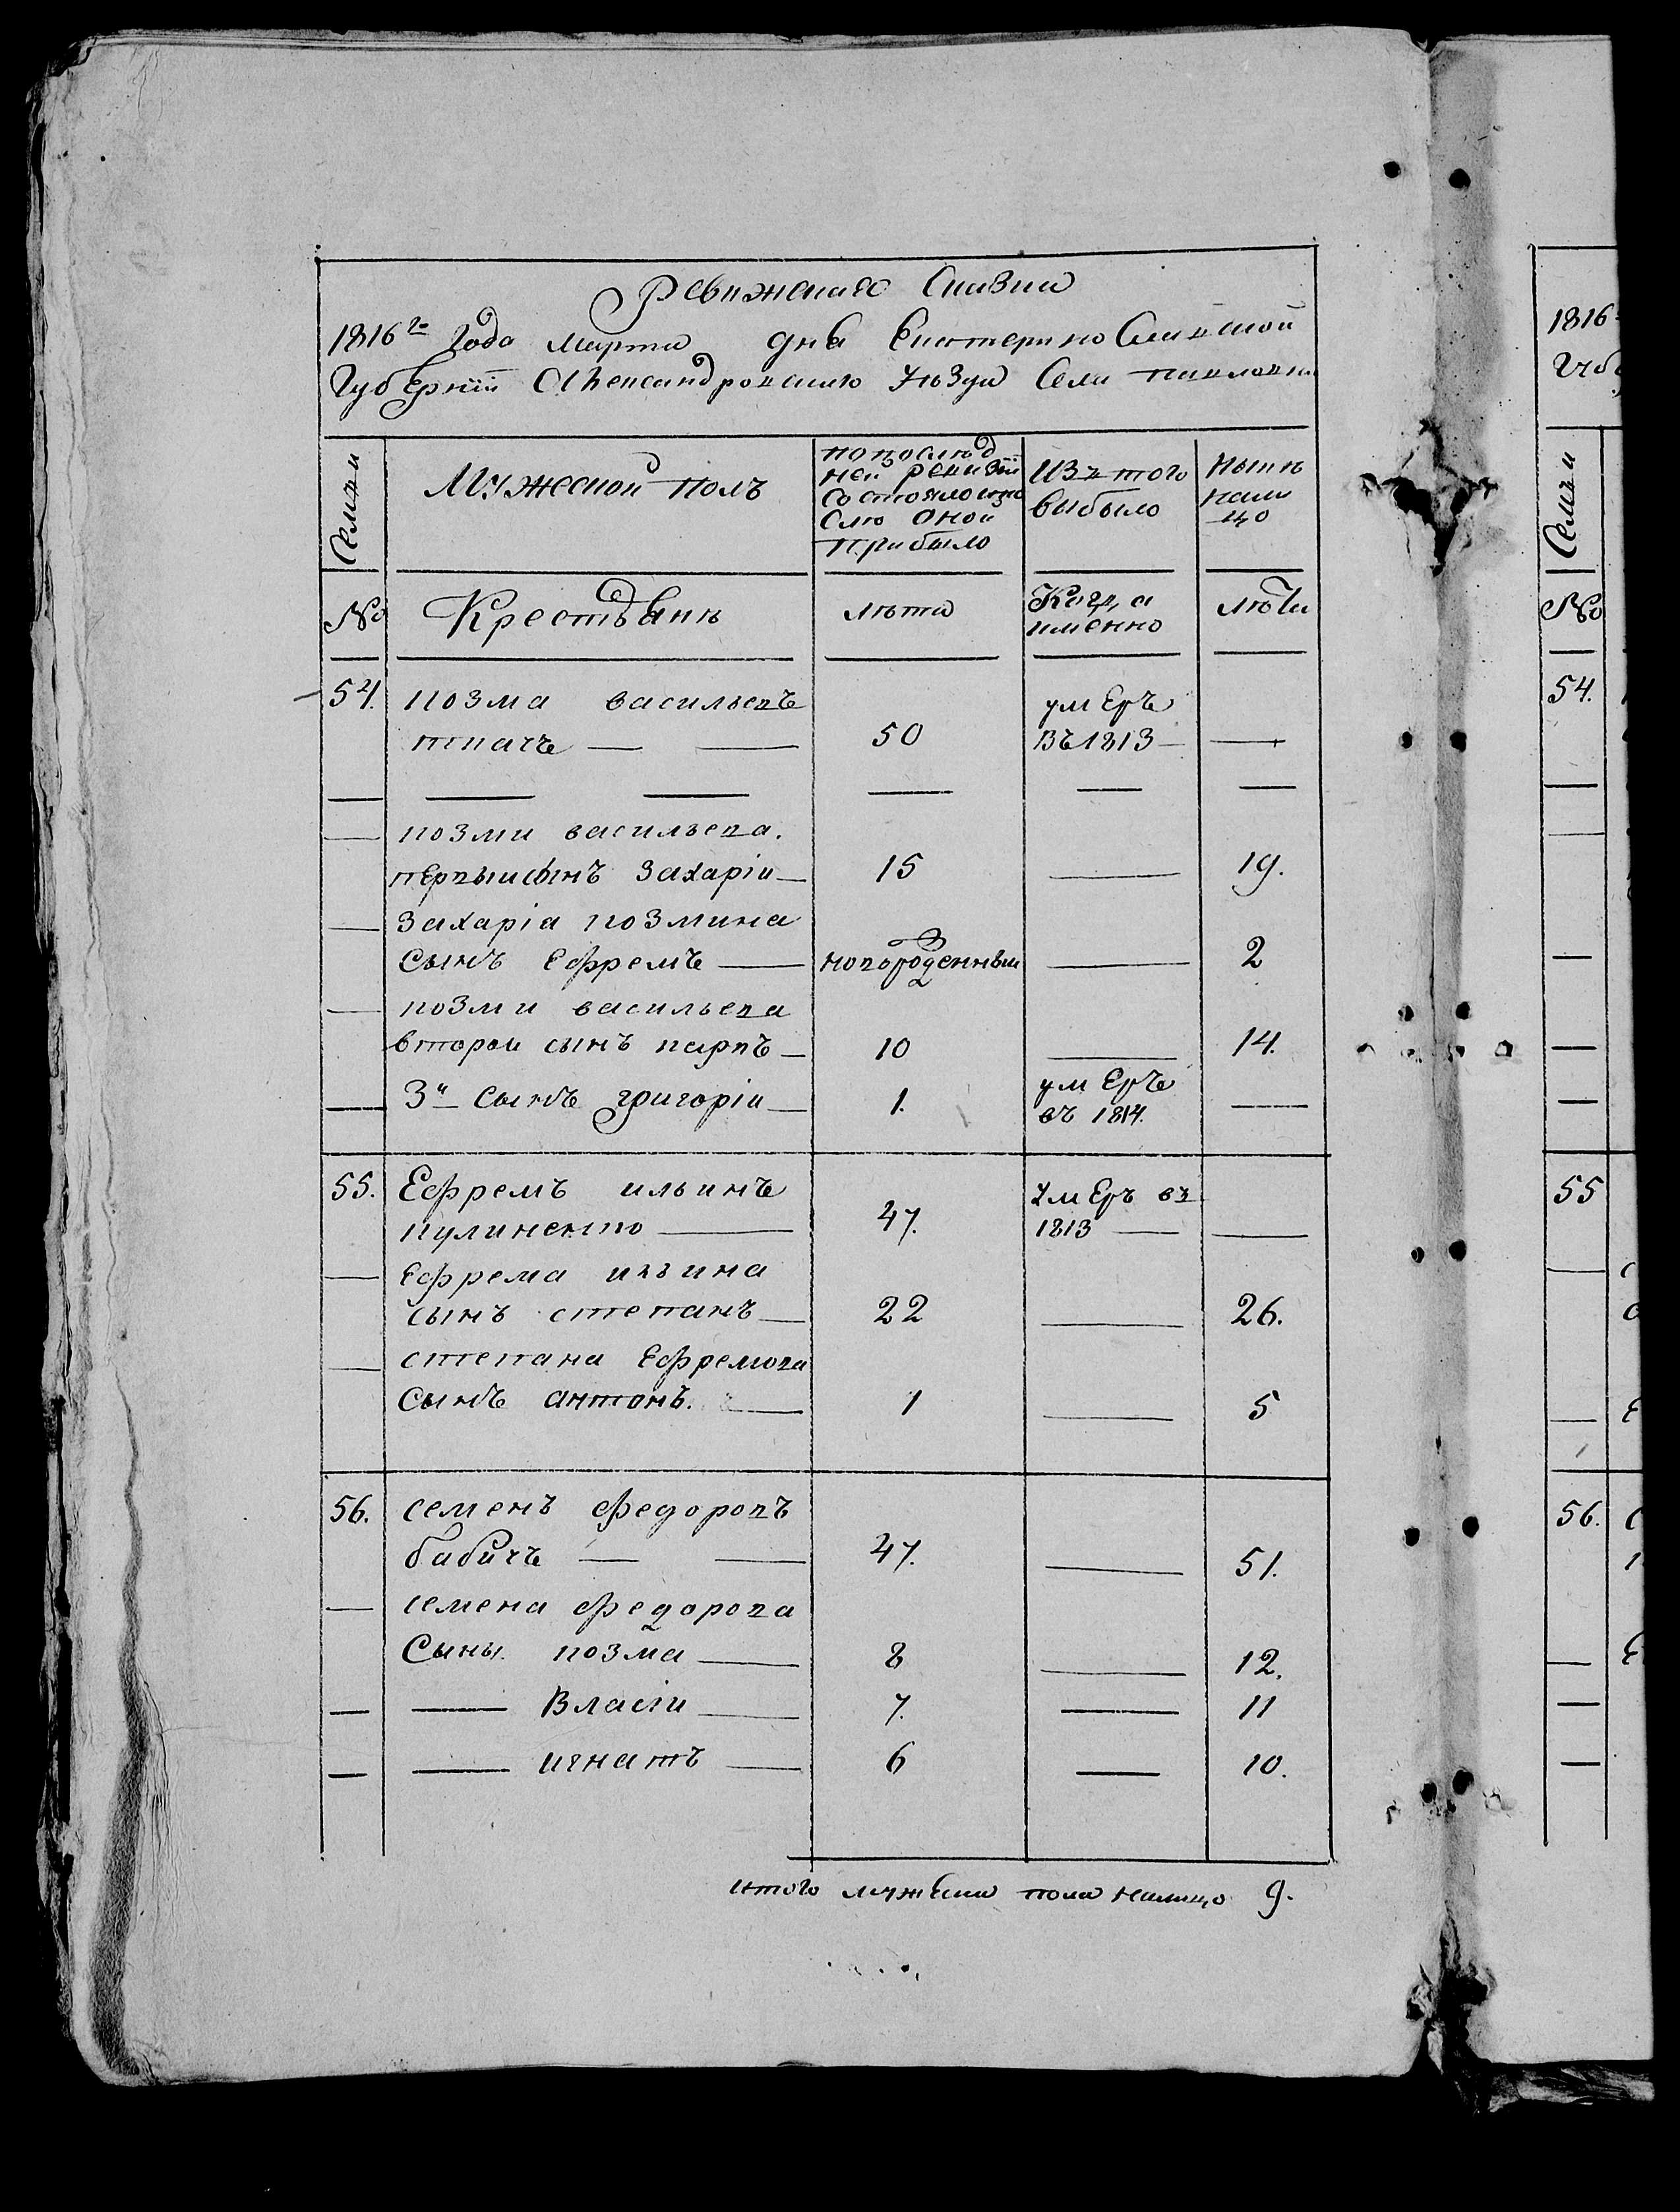 Ревижская Сказка
1816го Года Марта дня Екатеринославской
Губернїи Александровского уѣзда Села павловки
Семьи
Мужеской полъ
попослѣд
ней ревизїи
состояло ипо
слѣ оной
прибыло
Изъ того
выбыло
Нынѣ
нали
цо
№
Крестьянѣ
лѣта
Когда
именно
лѣта
54.
козма васильевъ
ткачь
50
умеръ
въ 1813
козми васильева.
первыи сынъ Захаріи
15
19.
Захаріа козмина
сынъ Ефремъ
новорожденныи
2
козми васильева
второи сынъ карпъ
10
14.
3и сынъ григоріи
1.
умеръ
въ 1814.
55.
Ефремъ ильинъ
кулиненко
47.
умеръ въ
1813
Ефрема ильина
сынъ степанъ
22
26.
степана Ефремова
сынъ антонъ.
1
5
56.
семенъ федоровъ
бабичъ
47.
51.
семена федорова
Сыны козма
8
12.
Власіи
7.
11
игнатъ
6
10.
итого мужеска пола налицо 9.
1816
Губ
Семьи
№
54.
55
56.